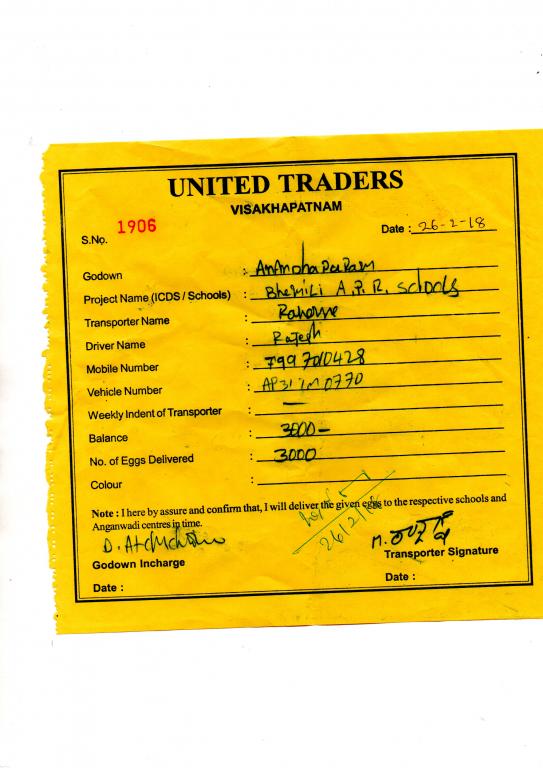 UNITED TRADERS
VISAKHAPATNAM
S.No. 1906
Date : 26-2-18
Godown :
Project Name (ICDS / Schools) : Bhemili A.P.R. schools
Transporter Name :
Driver Name : Rajesh
Mobile Number : 7997010428
Vehicle Number : AP31 TM 0770
Weekly Indent of Transporter : —
Balance : 3000 -
No. of Eggs Delivered : 3000
Colour :
Note : I here by assure and confirm that, I will deliver the given eggs to the respective schools and
Anganwadi centres in time.
Godown Incharge
Transporter Signature
Date :
Date :